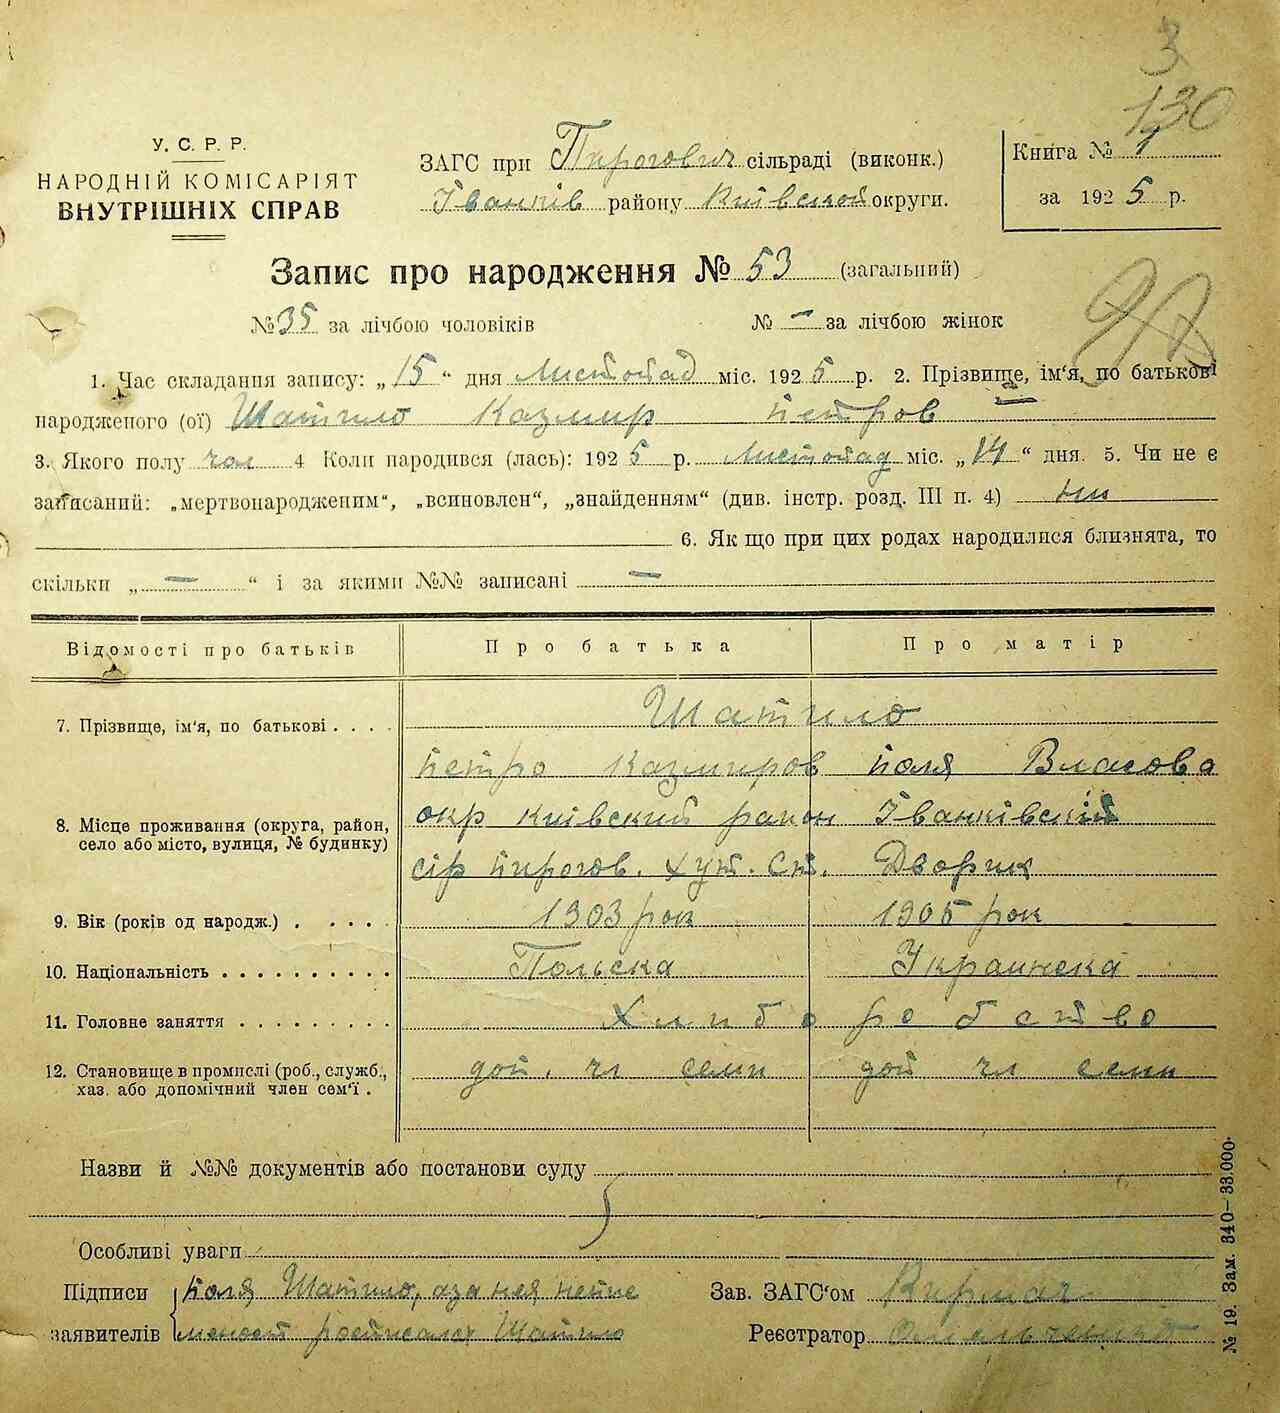 3
130
У. С. Р. Р.
НАРОДНІЙ КОМІСАРІЯТ
ВНУТРІШНІХ СПРАВ
ЗАГС при Пирогович сільраді (виконк.)
Іванків району Київской округи.
Книга № 1
за 1925 р.
Запис про народження № 53 (загальний)
№ 35 за лічбою чоловіків № — за лічбою жінок
1. Час складання запису: „15“ дня Листопад міс. 1925 р. 2. Прізвище, ім'я, по батькові
народженого (ої) Шатило Казмир Петров
3. Якого полу чол 4 Коли народився (лась): 1925 р. Листопад міс. „14“ дня. 5. Чи не є
записаний: „мертвонародженим“, „всиновлен“, „знайденням“ (див. інстр. розд. III п. 4) ни
6. Як що при цих родах народилися близнята, то
скільки „ — “ і за якими №№ записані —
Відомості про батьків Про батька Про матір
7. Прізвище, ім'я, по батькові . . . . Шатило
Петро Казмиров Поля Власова
8. Місце проживання (округа, район, село або місто, вулиця, № будинку) окр Київский район Іванківский
с/р Пирогов. Хут. Ст. Дворик
9. Вік (років од народж.) . . . . . 1903 рок 1905 рок
10. Національність . . . . . . . . . . Польска Украинска
11. Головне заняття . . . . . . . . . Хлиборобство
12. Становище в промислі (роб., служб., хаз. або допомічний член сем'ї . доп. чл семи доп чл семи
Назви й №№ документів або постанови суду
Особливі уваги
Підписи Поля Шатило, а за нея
заявителів росписался Шатило
Зав. ЗАГС'ом
Реєстратор
№ 19. Зам. 340—33.000.